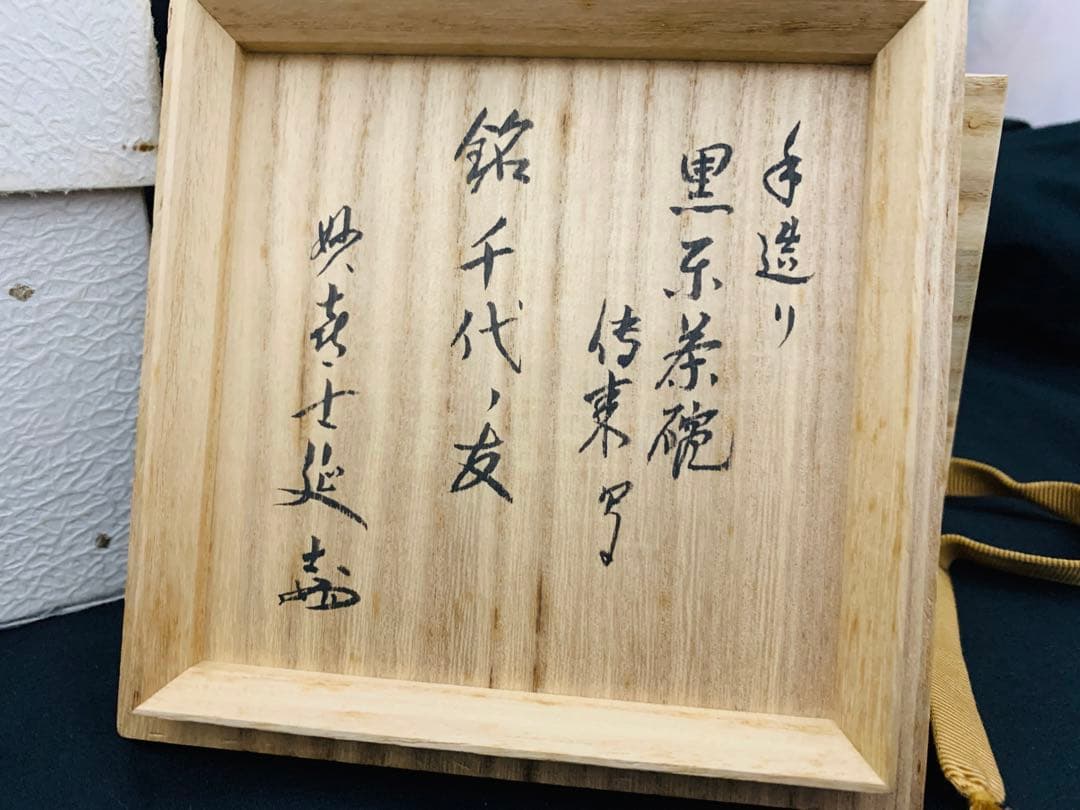 手造り
黒楽茶碗
伝来写
銘 千代ノ友
妙喜士延